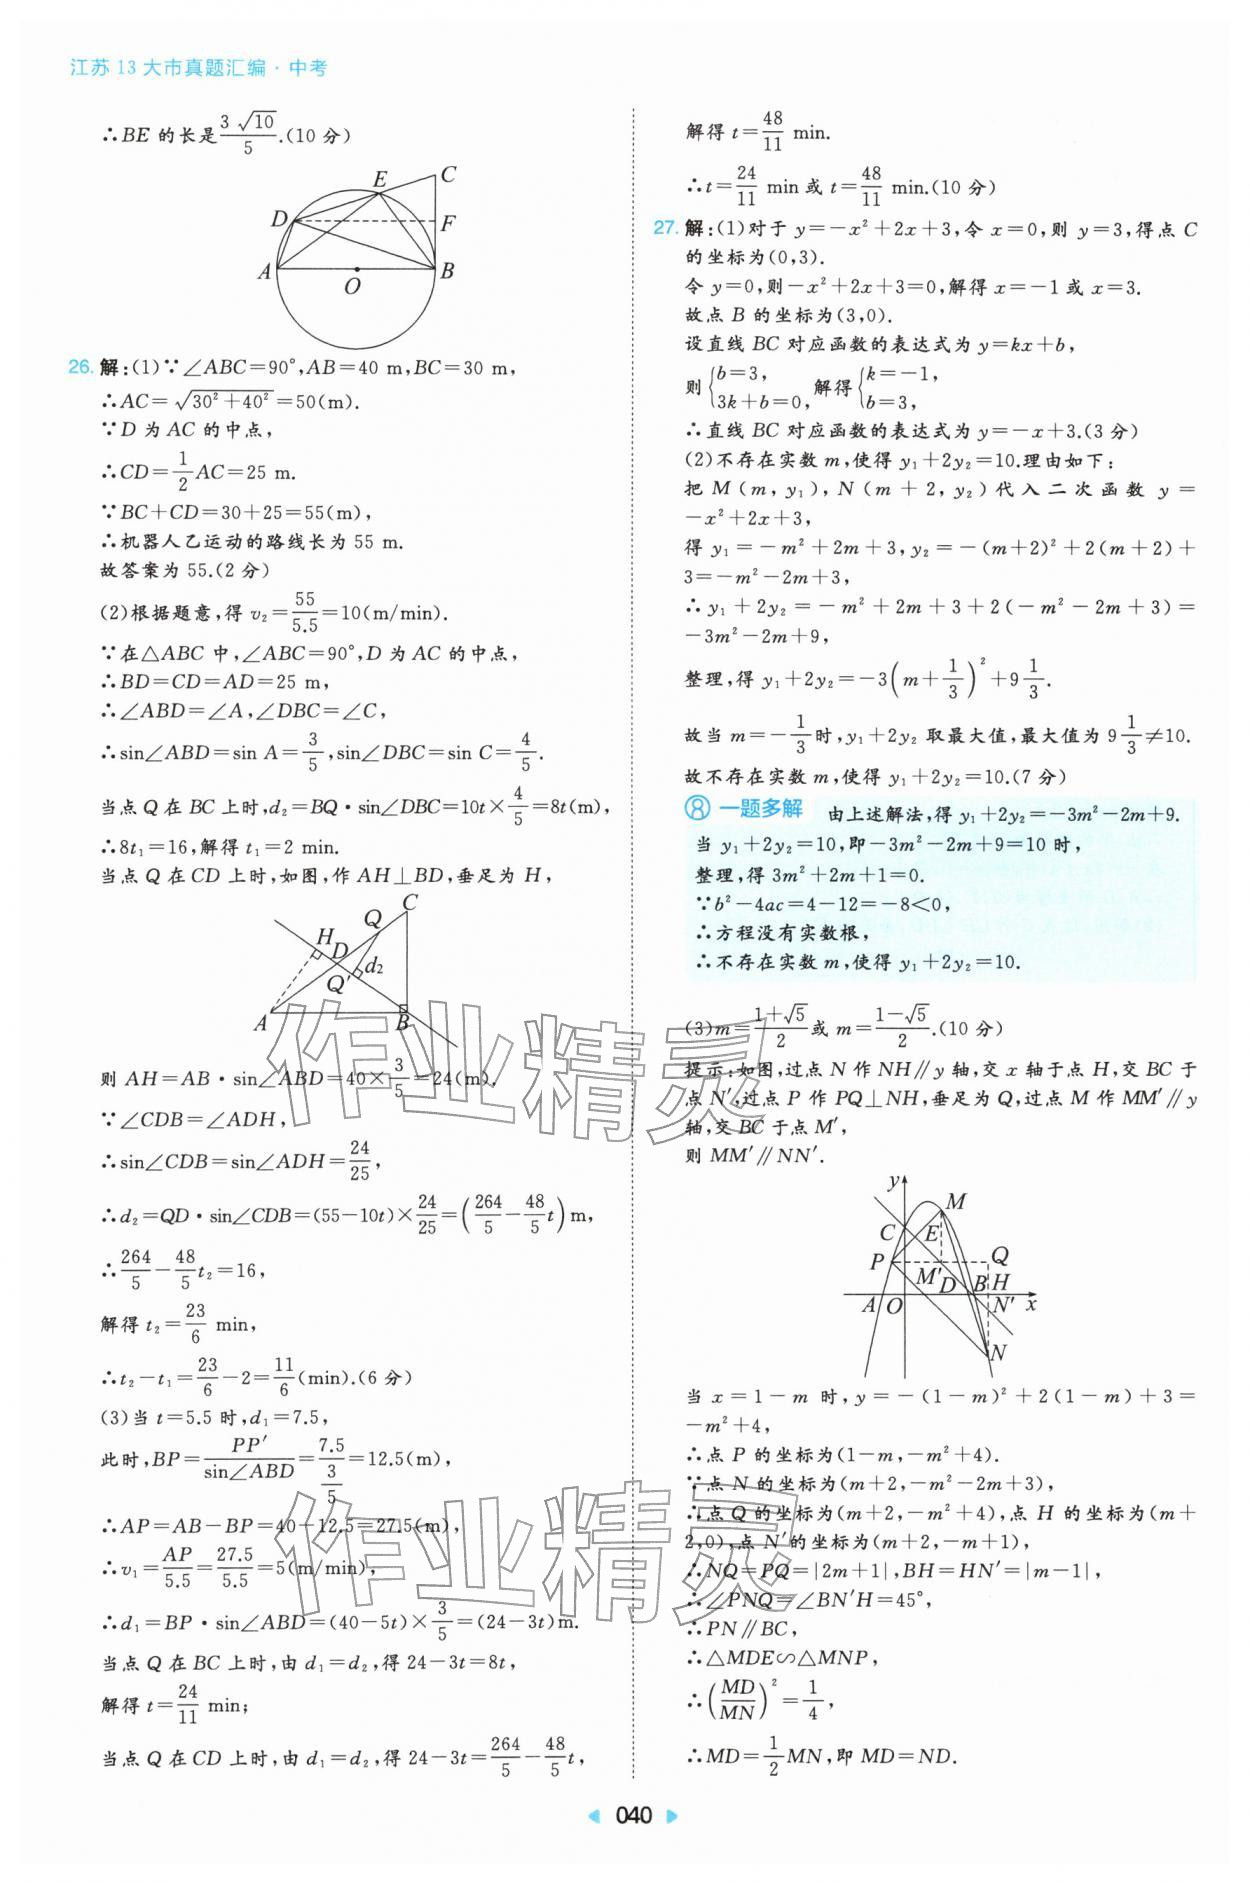 江苏13大市真题汇编·中考
∴BE的长是3√10/5.(10分)
E
C
D
F
A
B
O
26. 解:(1)∵∠ABC=90°,AB=40 m,BC=30 m,
∴AC=√(30²+40²)=50(m).
∵D为AC的中点,
∴CD=1/2AC=25 m.
∵BC+CD=30+25=55(m),
∴机器人乙运动的路线长为55 m.
故答案为55.(2分)
(2)根据题意,得v₂=55/5.5=10(m/min).
∵在△ABC中,∠ABC=90°,D为AC的中点,
∴BD=CD=AD=25 m,
∴∠ABD=∠A,∠DBC=∠C,
∴sin∠ABD=sin A=3/5,sin∠DBC=sin C=4/5.
当点Q在BC上时,d₂=BQ·sin∠DBC=10t×4/5=8t(m),
∴8t₁=16,解得t₁=2 min.
当点Q在CD上时,如图,作AH⊥BD,垂足为H,
C
Q
H
D
d₂
Q′
A
B
则AH=AB·sin∠ABD=40×3/5=24(m),
∵∠CDB=∠ADH,
∴sin∠CDB=sin∠ADH=24/25,
∴d₂=QD·sin∠CDB=(55-10t)×24/25=(264/5-48/5t)m,
∴264/5-48/5t₂=16,
解得t₂=23/6 min,
∴t₂-t₁=23/6-2=11/6(min).(6分)
(3)当t=5.5时,d₁=7.5,
此时,BP=PP′/sin∠ABD=7.5/(3/5)=12.5(m),
∴AP=AB-BP=40-12.5=27.5(m),
∴v₁=AP/5.5=27.5/5.5=5(m/min),
∴d₁=BP·sin∠ABD=(40-5t)×3/5=(24-3t)m.
当点Q在BC上时,由d₁=d₂,得24-3t=8t,
解得t=24/11 min;
当点Q在CD上时,由d₁=d₂,得24-3t=264/5-48/5t,
解得t=48/11 min.
∴t=24/11 min或t=48/11 min.(10分)
27. 解:(1)对于y=-x²+2x+3,令x=0,则y=3,得点C
的坐标为(0,3).
令y=0,则-x²+2x+3=0,解得x=-1或x=3.
故点B的坐标为(3,0).
设直线BC对应函数的表达式为y=kx+b,
则{b=3, 3k+b=0, 解得{k=-1, b=3,
∴直线BC对应函数的表达式为y=-x+3.(3分)
(2)不存在实数m,使得y₁+2y₂=10.理由如下:
把M(m,y₁),N(m+2,y₂)代入二次函数y=
-x²+2x+3,
得y₁=-m²+2m+3,y₂=-(m+2)²+2(m+2)+
3=-m²-2m+3,
∴y₁+2y₂=-m²+2m+3+2(-m²-2m+3)=
-3m²-2m+9,
整理,得y₁+2y₂=-3(m+1/3)²+9 1/3.
故当m=-1/3时,y₁+2y₂取最大值,最大值为9 1/3≠10.
故不存在实数m,使得y₁+2y₂=10.(7分)
一题多解 由上述解法,得y₁+2y₂=-3m²-2m+9.
当y₁+2y₂=10,即-3m²-2m+9=10时,
整理,得3m²+2m+1=0.
∵b²-4ac=4-12=-8<0,
∴方程没有实数根,
∴不存在实数m,使得y₁+2y₂=10.
(3)m=(1+√5)/2或m=(1-√5)/2.(10分)
提示:如图,过点N作NH∥y轴,交x轴于点H,交BC于
点N′,过点P作PQ⊥NH,垂足为Q,过点M作MM′∥y
轴,交BC于点M′,
则MM′∥NN′.
y
M
C
E
P
Q
M′
D
B
H
A
O
N′
x
N
当x=1-m时,y=-(1-m)²+2(1-m)+3=
-m²+4,
∴点P的坐标为(1-m,-m²+4).
∵点N的坐标为(m+2,-m²-2m+3),
∴点Q的坐标为(m+2,-m²+4),点H的坐标为(m+
2,0),点N′的坐标为(m+2,-m+1),
∴NQ=PQ=|2m+1|,BH=HN′=|m-1|,
∴∠PNQ=∠BN′H=45°,
∴PN∥BC,
∴△MDE∽△MNP,
∴(MD/MN)²=1/4,
∴MD=1/2MN,即MD=ND.
040
作业精灵
作业精灵